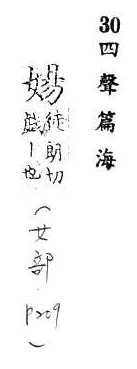 30 四聲篇海
婸
徒朗切
戲丨也
(女部 P209)